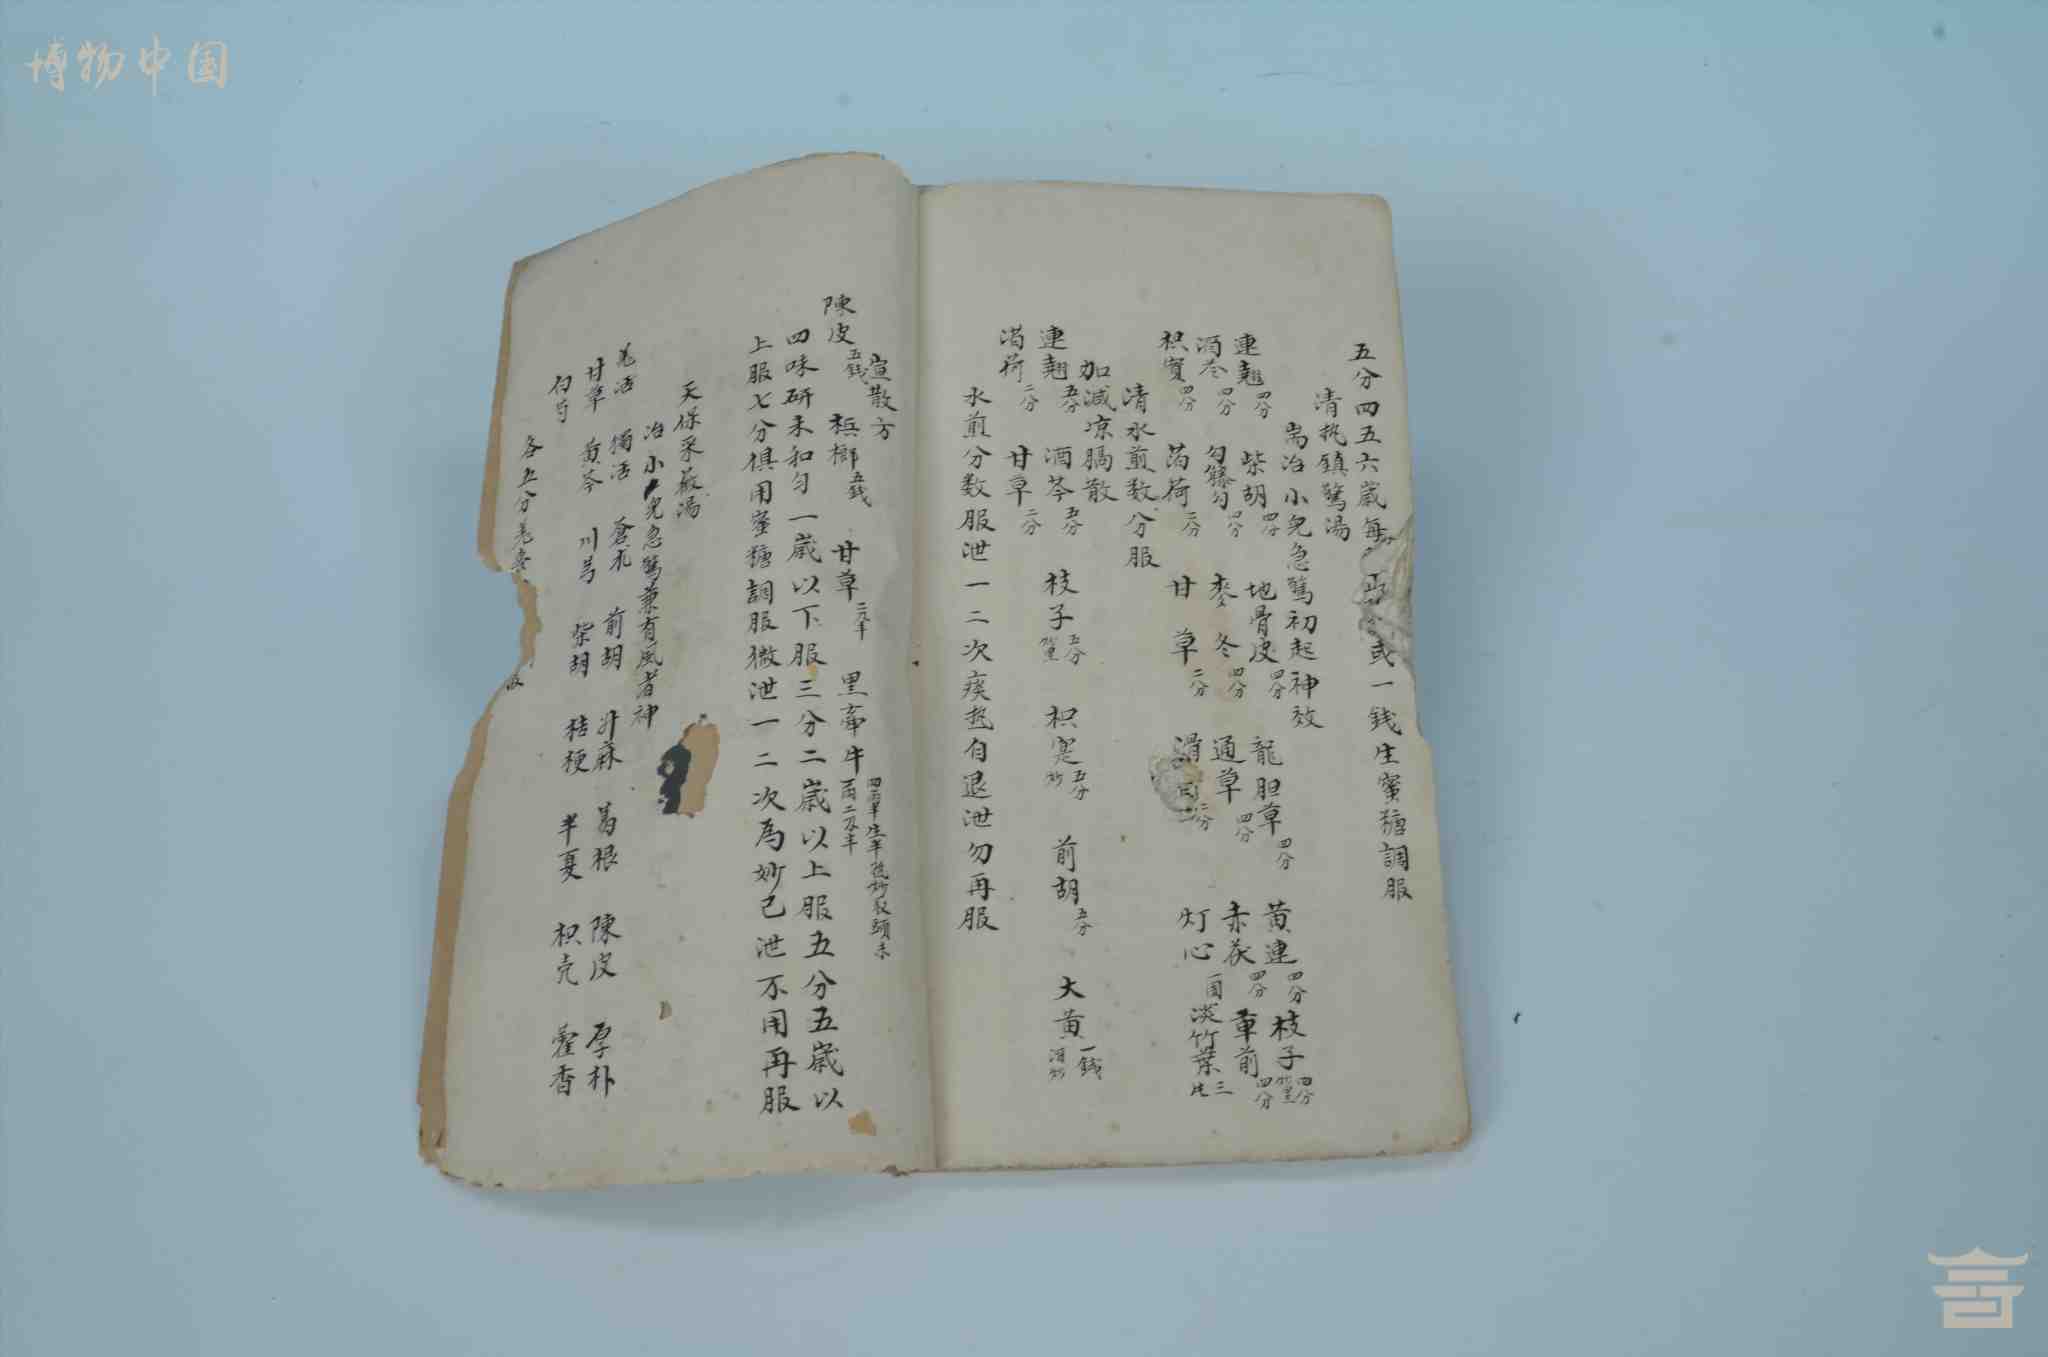 博物中国
五分四五六歲每或一錢生蜜糖調服
清热鎮驚湯
耑治小兒急驚初起神效
連翹四分 柴胡四分 地骨皮四分 龍胆草四分 黄連四分 枝子四分
酒芩四分 勾藤勾四分 麥冬四分 通草四分 赤茯四分 車前四分
枳實四分 薄荷二分 甘草二分 滑石二分 灯心一團 淡竹葉三片
清水煎数分服
加減凉膈散
連翹五分 酒芩五分 枝子五分 枳寔五分炒 前胡五分 大黄一錢酒炒
薄荷二分 甘草二分
水煎分数服泄一二次痰热自退泄勿再服
宣散方
陳皮五錢 梹榔五錢 甘草二分半 黑牽牛四兩半生半熟炒取頭末一兩二分半
四味研末和匀一歲以下服三分二歲以上服五分五歲以
上服七分俱用蜜糖調服微泄一二次為妙已泄不用再服
天保采薇湯
治小兒急驚兼有風者神
羌活 獨活 蒼朮 前胡 升麻 葛根 陳皮 厚朴
甘草 黄芩 川芎 柴胡 桔梗 半夏 枳壳 藿香
白芍
各五分羌